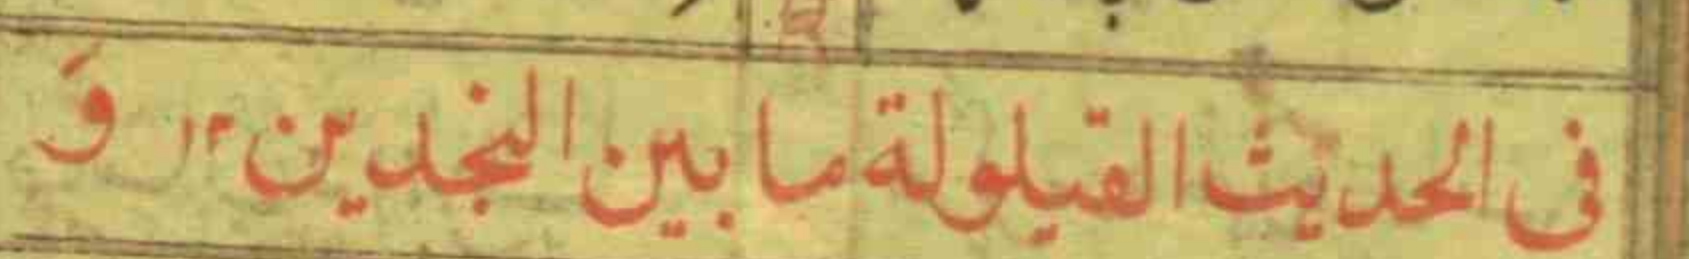 فى الحديث القيلولة ما بين النجدين ١٢ وَ